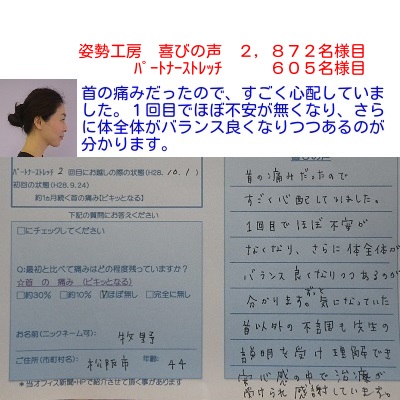 姿勢工房　喜びの声　２，８７２名様目
ﾊﾟｰﾄﾅｰｽﾄﾚｯﾁ　　６０５名様目
首の痛みだったので、すごく心配していま
した。１回目でほぼ不安が無くなり、さら
に体全体がバランス良くなりつつあるのが
分かります。
ﾊﾟｰﾄﾅｰｽﾄﾚｯﾁ 2 回目にお越しの際の状態(H28. 10. 1 )
初回の状態(H28.9.24)
約1ヵ月続く首の痛み(ピキッとなる)
下記の質問にお答えください
□にチェックしてください
Q:最初と比べて痛みはどの程度残っていますか？
☆首 の 痛み (ピキッとなる)
□約30% □約10% ☑ほぼ無し □完全に無し
お名前(ニックネーム可): 牧野
ご住所(市町村名): 松阪市 年齢: 44
＊当オフィス新聞・HPで紹介させて頂く事があります
首の痛みだったので
すごく心配していました。
1回目でほぼ不安が
なくなり、さらに体全体が
バランス良くなりつつあるのが
分かります。ずっと気になっていた
首以外の不調も先生の
説明を受け理解でき
安心感の中で治療が
受けられ感謝しています。